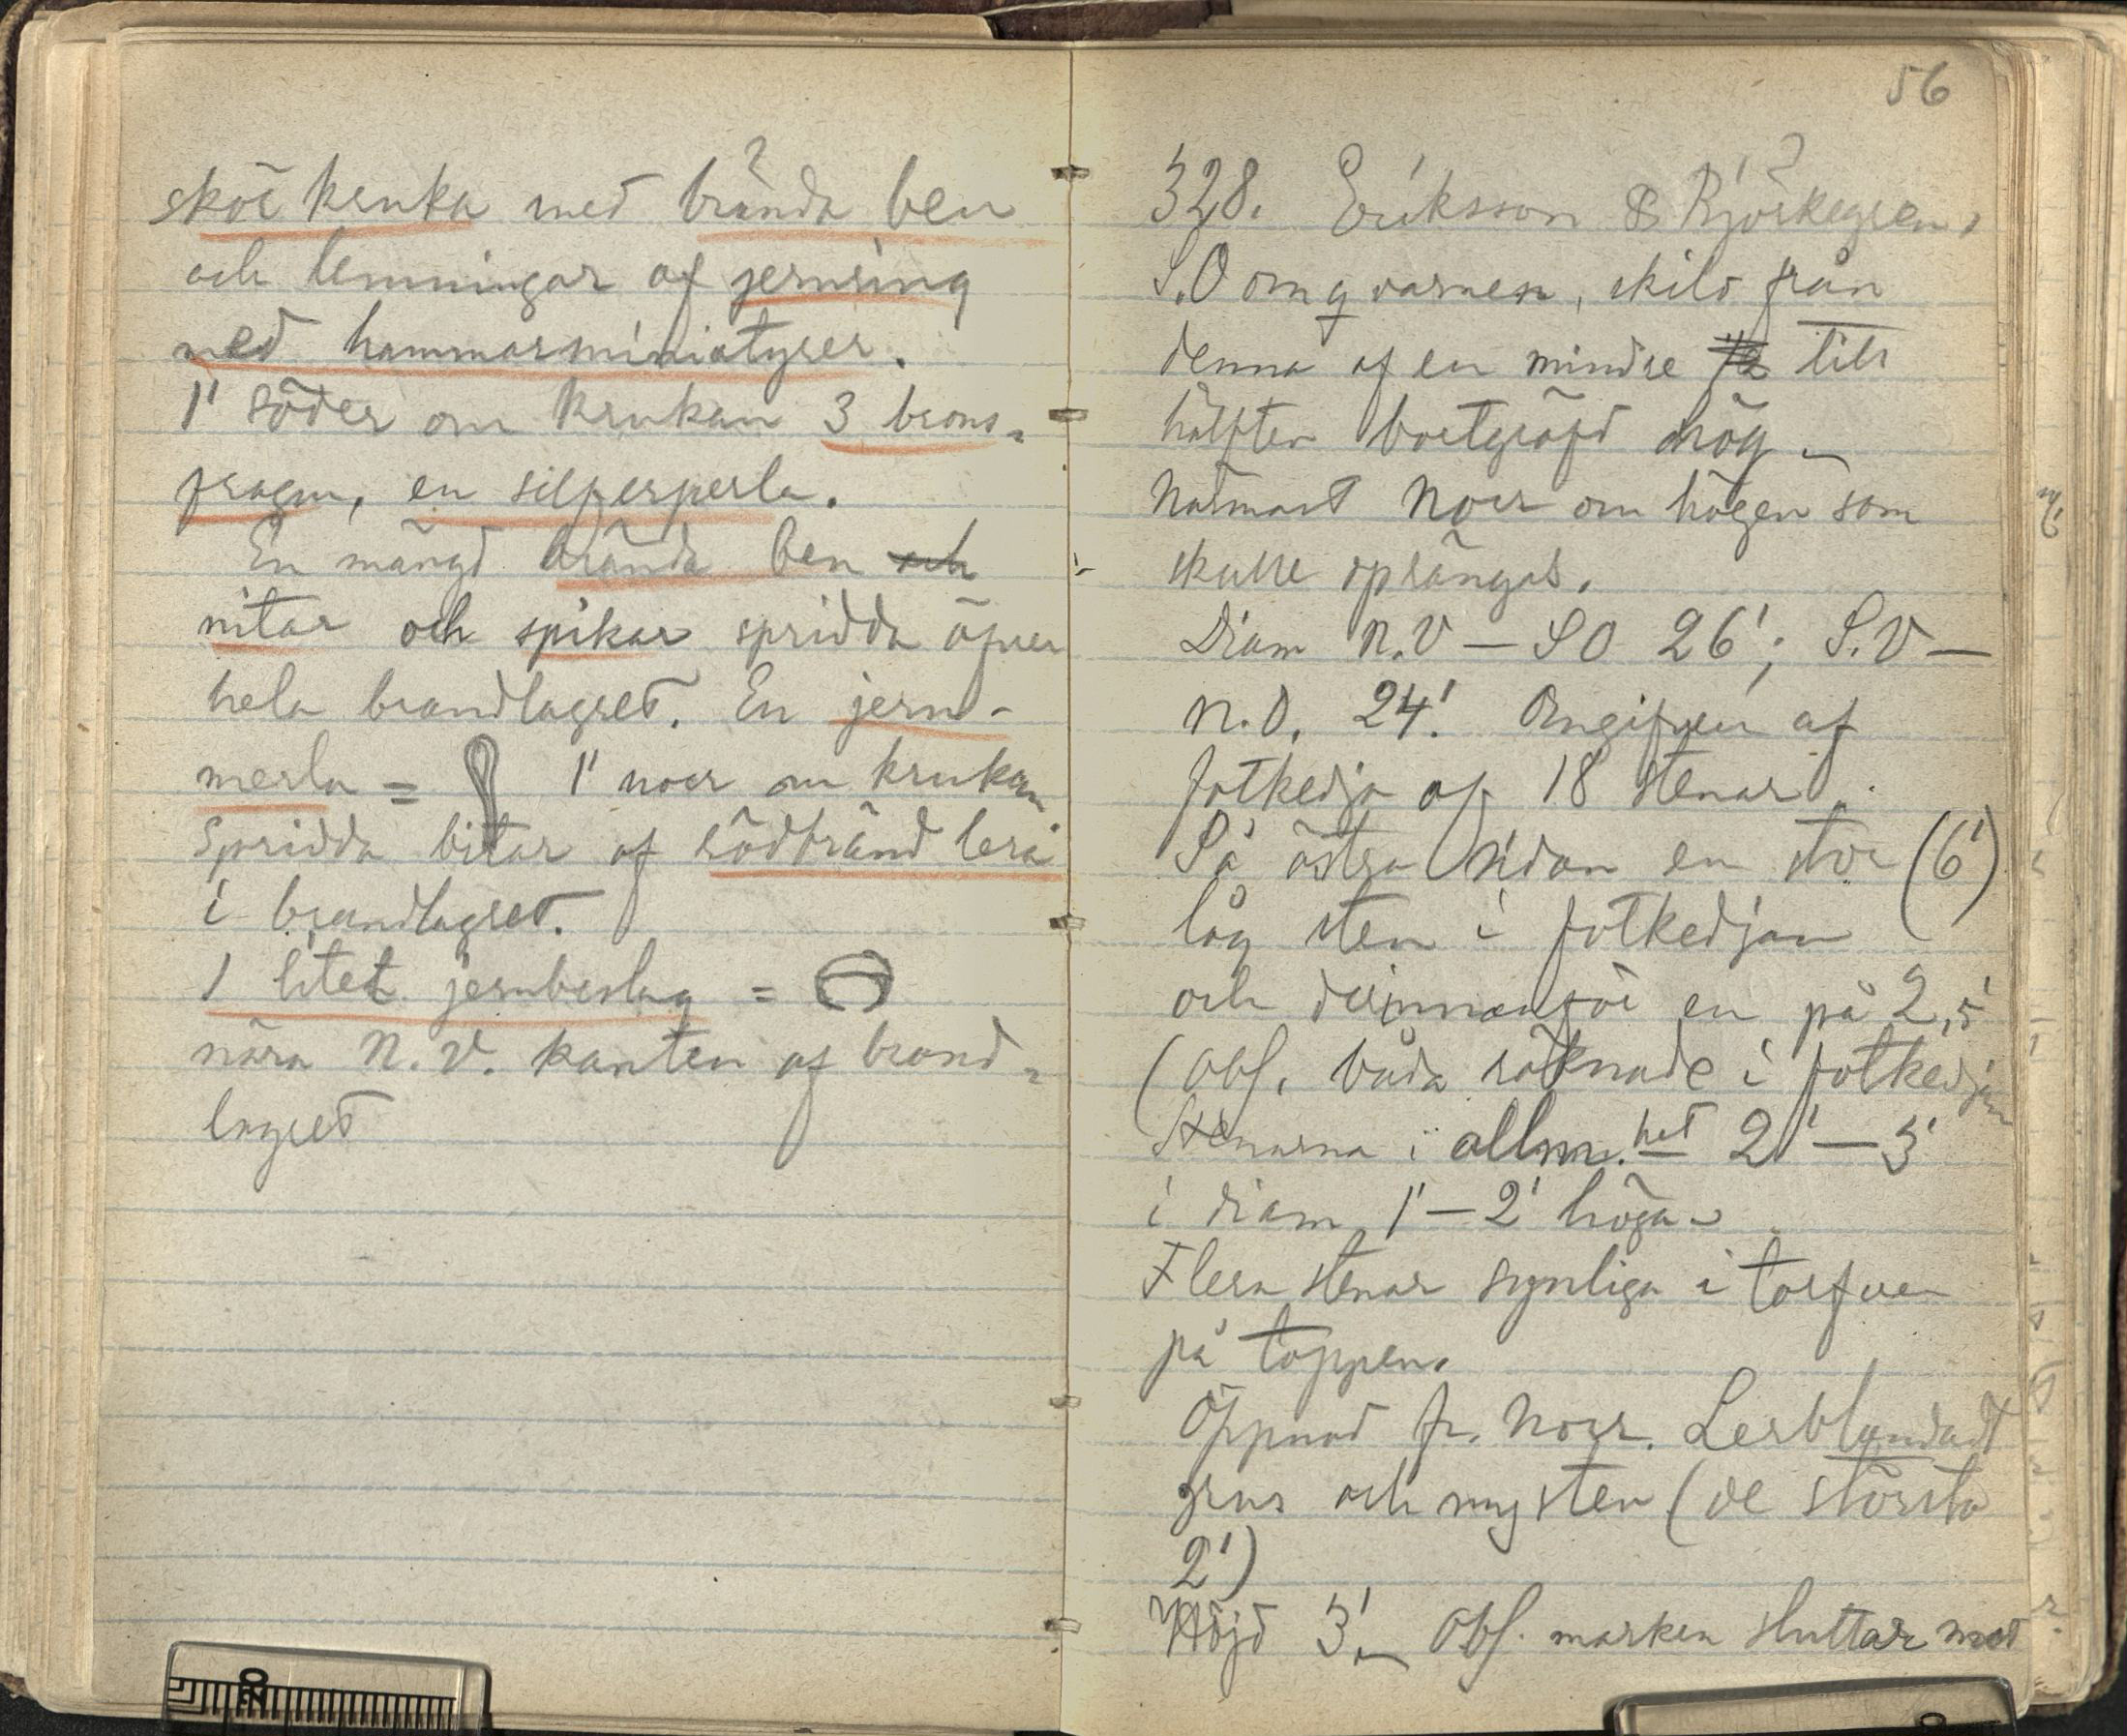 skör kruka med brända ben
?
och lemningar af jernring
med hammarminiatyrer.
1' söder om krukan 3 brons-
fragm, en silfverperla.
En mängd brända ben och
nitar och spikar spridda öfver
hela brandlagret. En jern-
merla = 1' norr om krukan
Spridda bitar af rödbränd lera
i brandlagret.
1 litet jernbeslag =
nära N.V. kanten af brand-
lagret
56
328. Eriksson & Björkegren,
?
S.O om qvarnen, skild från
denna af en mindre till
hälften bortgräfd hög
närmast norr om högen som
skulle sprängas.
Diam N.V — SO 26'; S.V —
N.O. 24'. Omgifven af
fotkedja af 18 stenar.
På östra sidan en stor (6')
låg sten i fotkedjan
och derinnanför en på 2,5'
(Obs. båda räknade i fotkedjan
Stenarna i allm.het 2' — 3'
i diam, 1' — 2' höga
Flera stenar synliga i torfven
på toppen.
Öppnad fr. Norr. Lerblandadt
grus och myc sten (de största
2')
Höjd 3'. Obs. marken sluttar mot